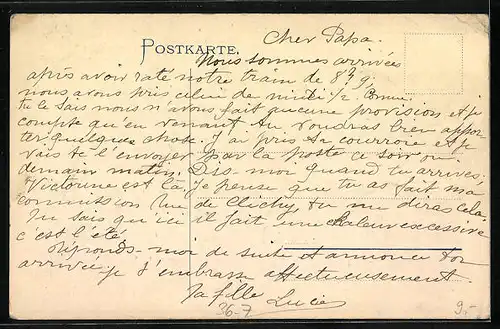 Cher Papa.
POSTKARTE.
Nous sommes arrivées
après avoir raté notre train de 8h 9
nous avons pris celui de midi 1/2 Comme
tu le sais nous n'avons fait aucune provision et je
compte qu'en venant tu voudras bien appor-
ter quelque chose. J'ai pris ta courroie et je
vais te l'envoyer par la poste ce soir ou
demain matin. Dis-moi quand tu arrives.
Victorine est là, je pense que tu as fait ma
commission Rue de Clichy, tu me diras cela.
Tu sais qu'ici il fait une chaleur excessive
c'est l'été.
Réponds-moi de suite et annonce ton
arrivée. je t'embrasse affectueusement.
Ta fille Lucie
36-7
9.-